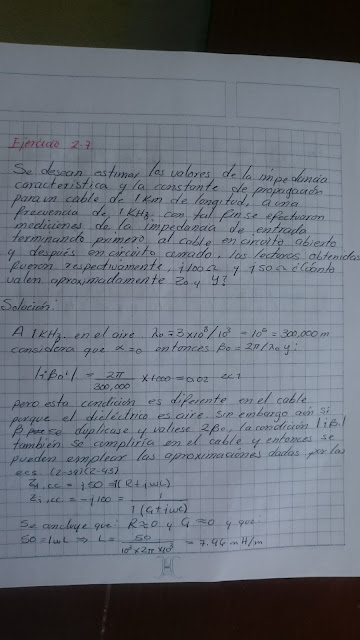 Ejercicio 2.7
Se desean estimar los valores de la impedancia
característica y la constante de propagación
para un cable de 1 Km de longitud, a una
frecuencia de 1 KHz. con tal fin se efectuaron
mediciones de la impedancia de entrada
terminando primero al cable en circuito abierto
y después en circuito cerrado, las lecturas obtenidas
fueron respectivamente, -j100Ω y j50Ω ¿cuánto
valen aproximadamente Zo y γ?
Solución:
A 1KHz. en el aire λo = 3x10⁸/10³ = 10⁵ = 300,000 m
considera que α=0 entonces βo = 2π/λo y:
|iβ₀l| = 2π/300,000 x 1000 = 0.02 <<1
pero esta condición es diferente en el cable
porque el dieléctrico es aire. sin embargo aún si
β se duplicase y valiese 2βo, la condición |iβl|
también se cumpliría en el cable y entonces se
pueden emplear las aproximaciónes dadas por las
ecs. (2-39)(2-43)
Zi,cc = j50 = l(R+jwL)
Zi,cc = -j100 = 1/l(G+jwC)
Se concluye que: R≈0 y G≈0 y que:
50 = lwL ⇒ L = 50/10³x2πx10³ = 7.96 mH/m